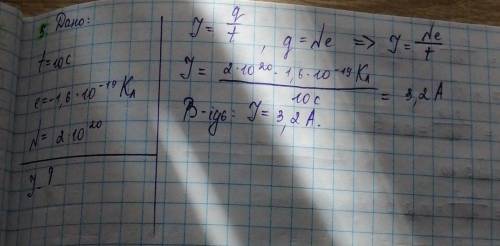 5. Дано:
t=10c
e=-1,6·10⁻¹⁹ Кл
N= 2·10²⁰
J-?
J = q/t , q=Ne => J= Ne/t
J = 2·10²⁰·1,6·10⁻¹⁹Кл / 10c = 3,2 A
В-ідь: J= 3,2 A.